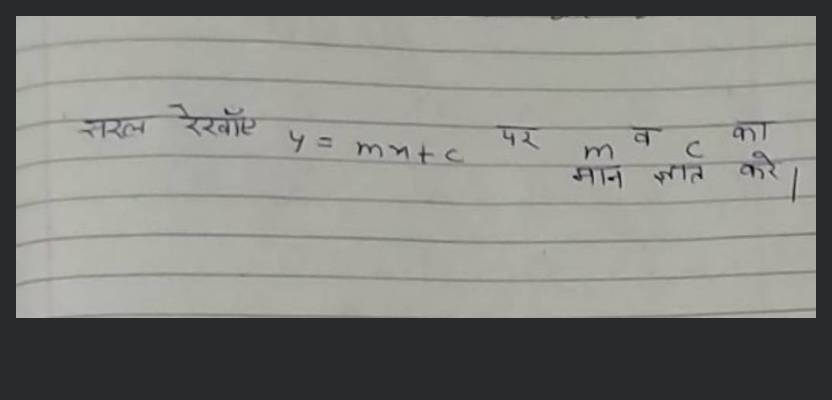 सरल रेखाएँ y = mx + c पर m व c का
मान ज्ञात करे |